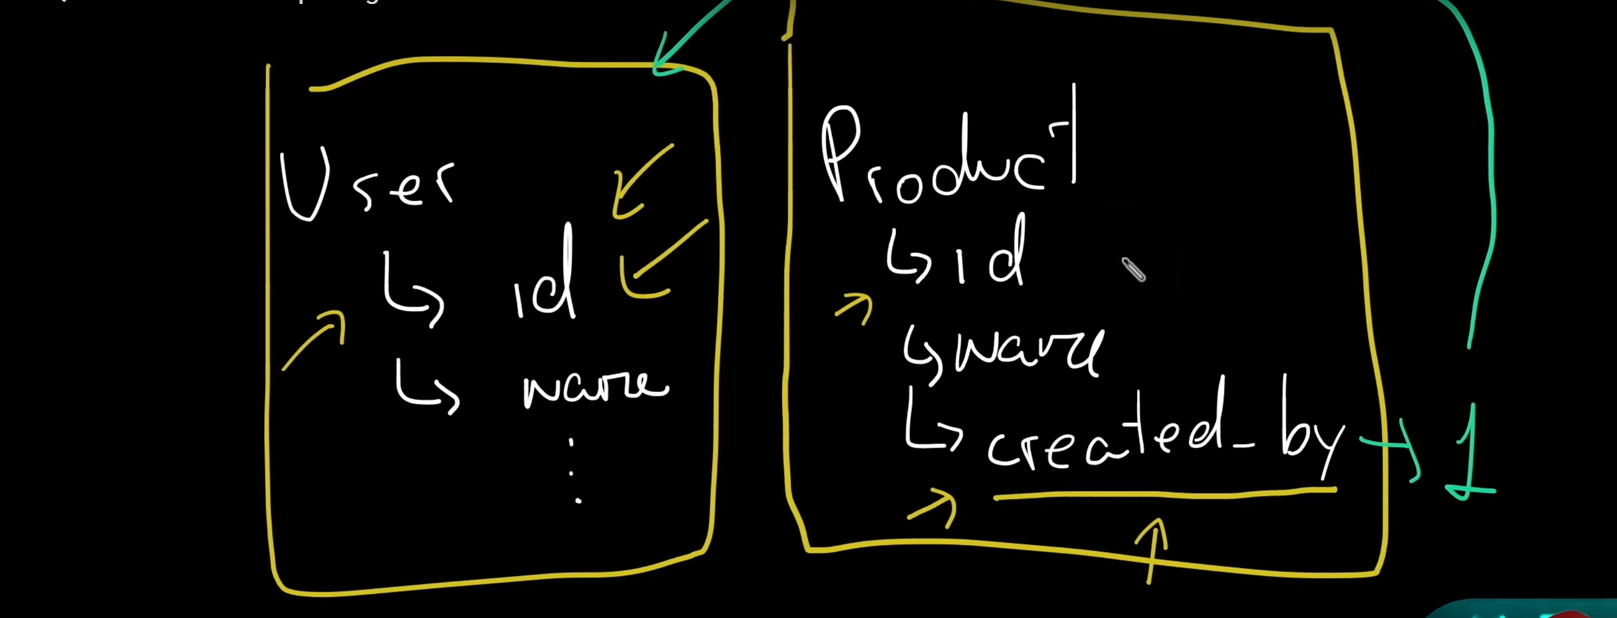 User
↳ id
↳ name
⋮
Product
↳ id
↳ name
↳ created_by → 1